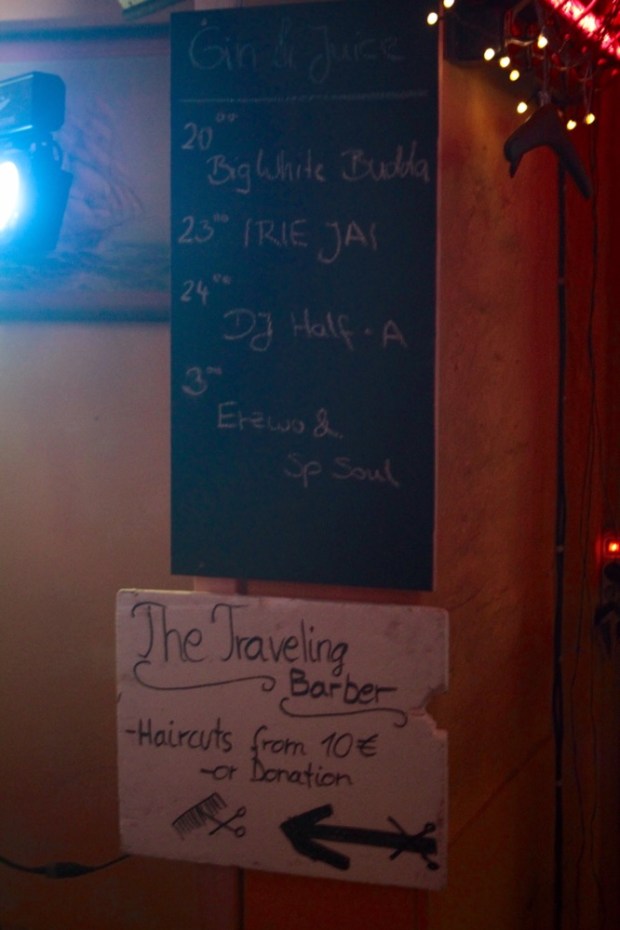 Gin & Juice
20°°
Big White Budda
23°° IRIE JAI
24°°
DJ Half-A
3°°
Erzwo &
Sp Soul
The Traveling
Barber
-Haircuts from 10€
-or Donation